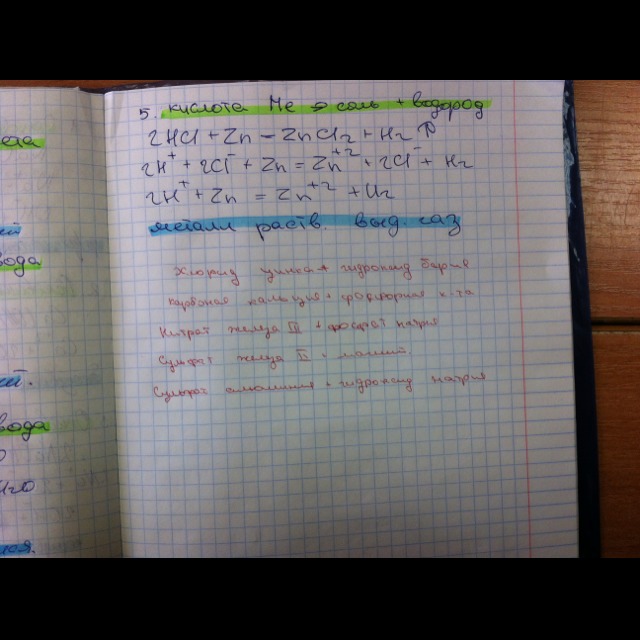 ода
ей
вода
ей.
вода
H2O
5. кислота Me → соль + водород
2HCl + Zn = ZnCl2 + H2 ↑
2H⁺ + 2Cl⁻ + Zn = Zn⁺² + 2Cl⁻ + H2
2H⁺ + Zn = Zn⁺² + H2
металл раств. выд газ
Хлорид цинка + гидроксид бария
карбонат кальция + фосфорная к-та
Нитрат железа III + фосфат натрия
Сульфат железа II + магний.
Сульфат алюминия + гидроксид натрия